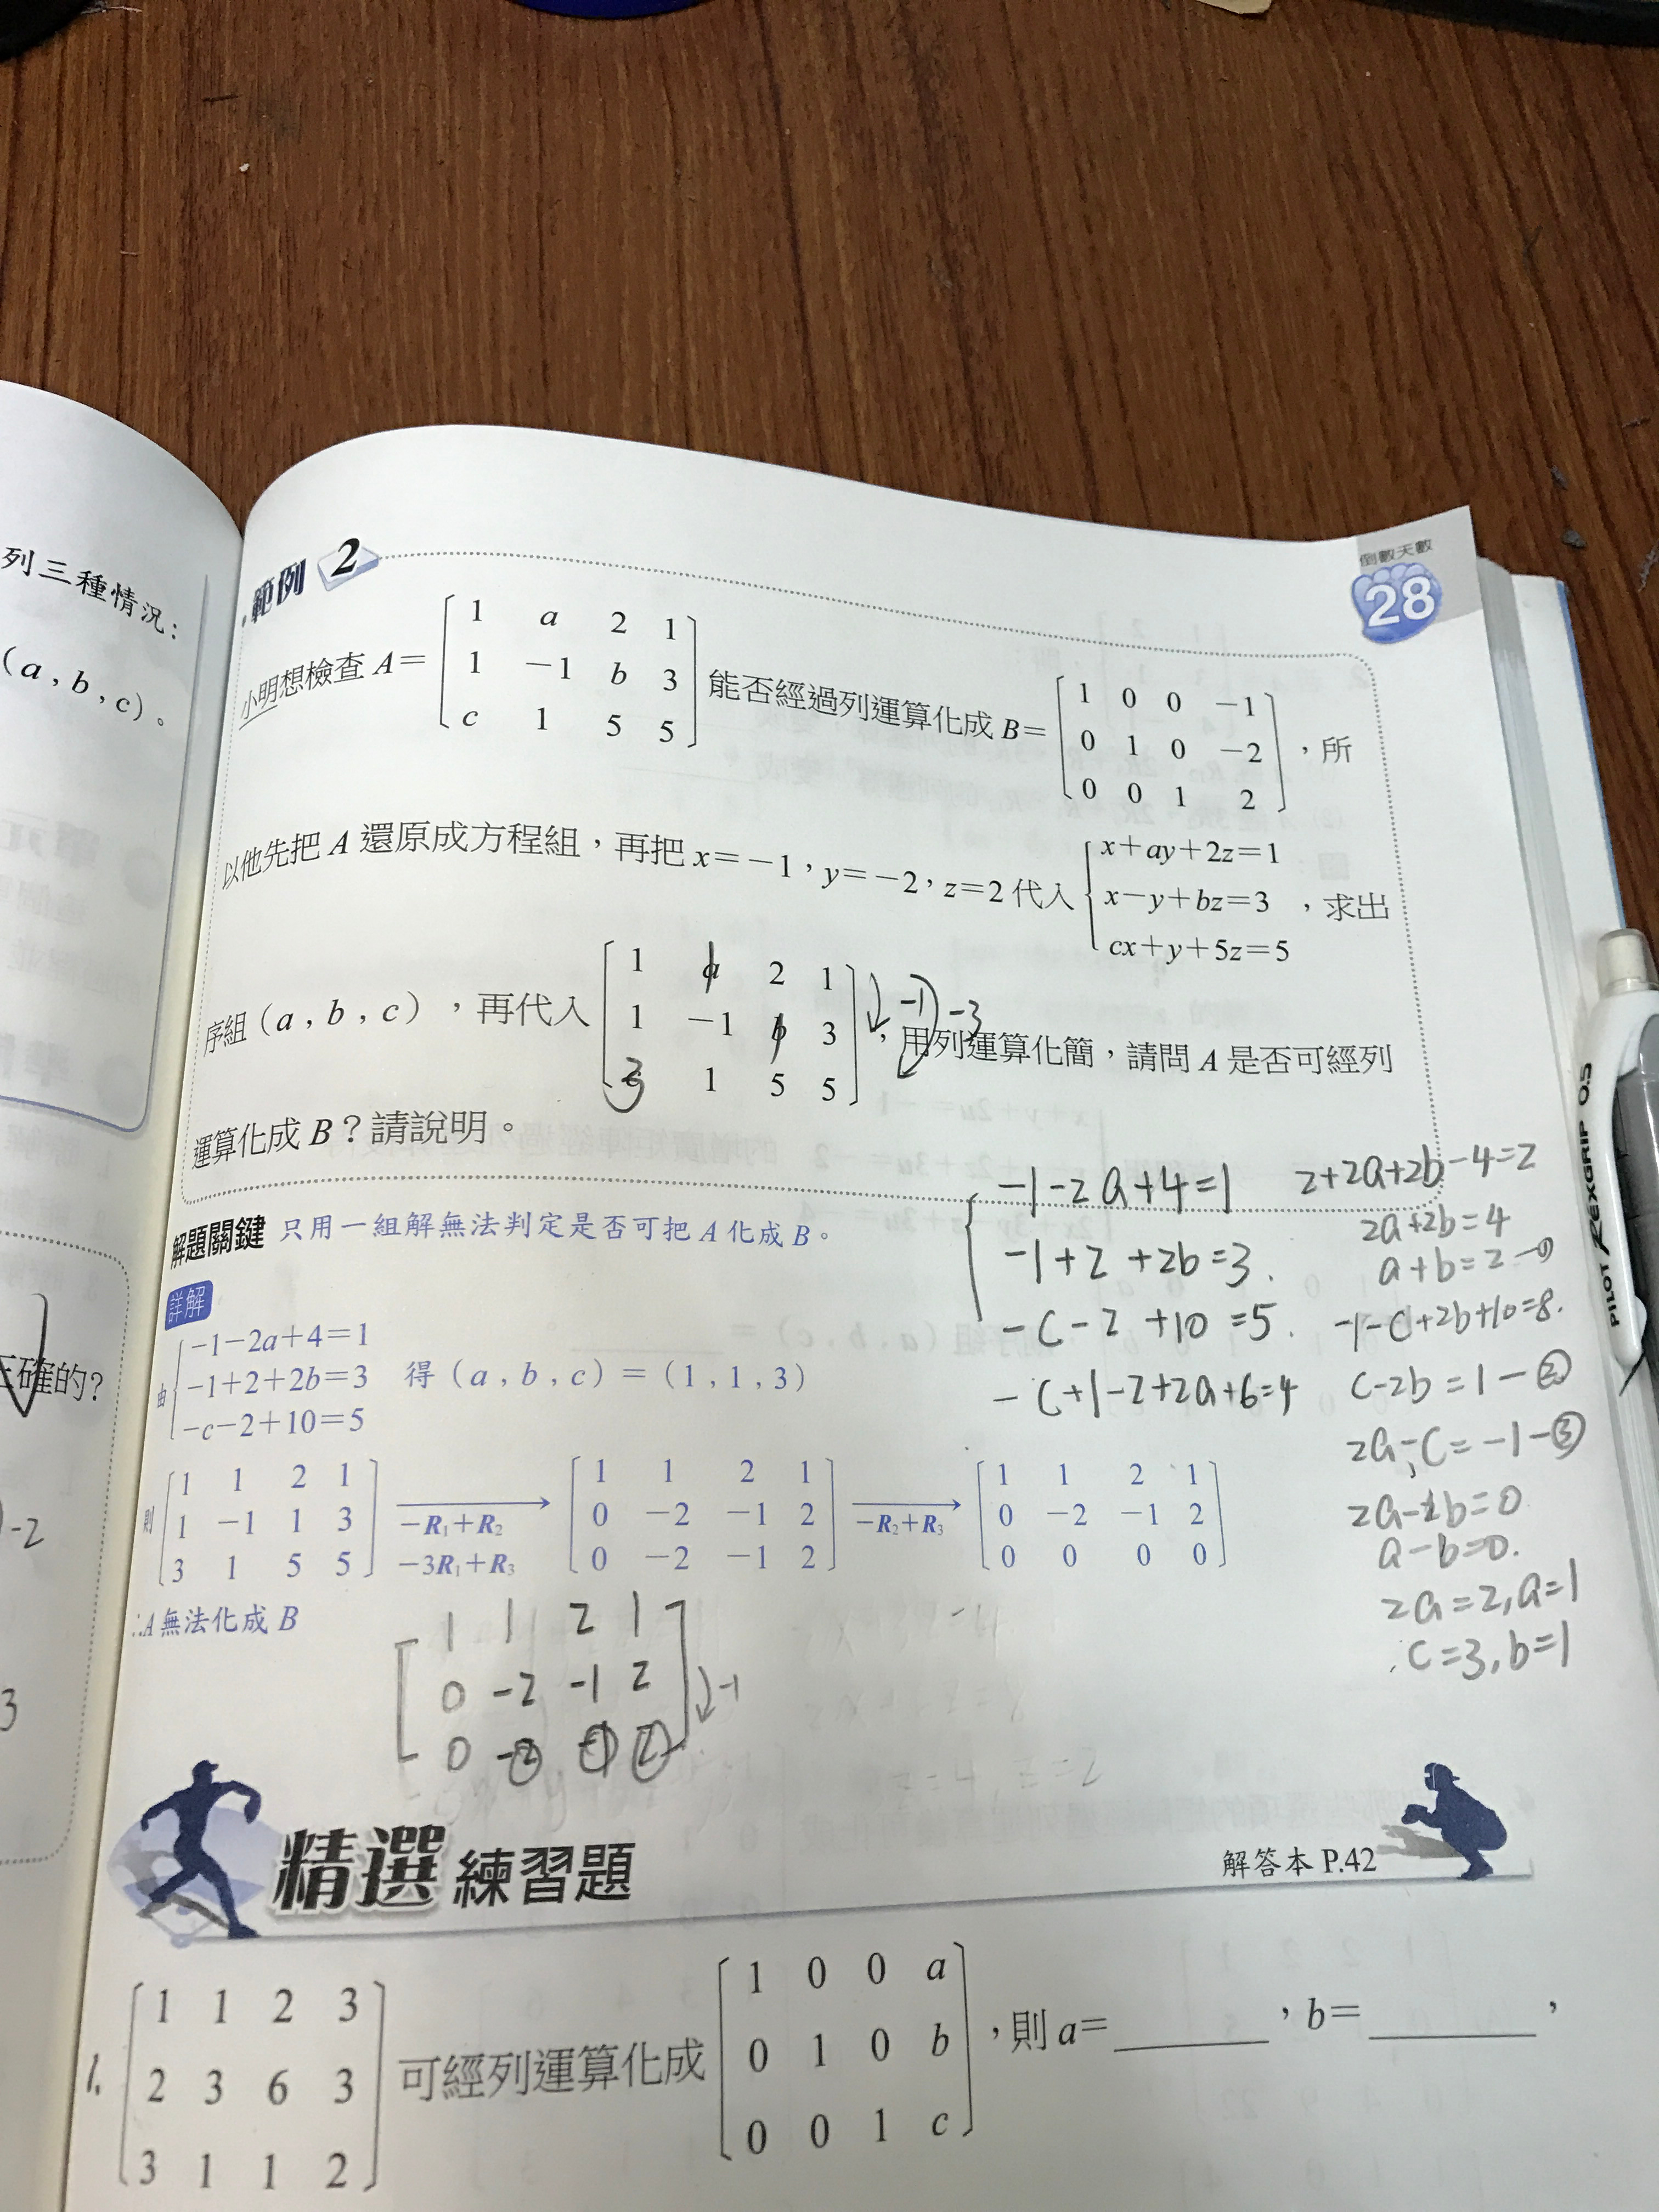 列三種情況：
(a , b , c)。
倒數天數
28
範例 2
小明想檢查 A= [1 a 2 1
1 -1 b 3
c 1 5 5] 能否經過列運算化成 B= [1 0 0 -1
0 1 0 -2
0 0 1 2]，所
以他先把 A 還原成方程組，再把 x=-1，y=-2，z=2 代入 {x+ay+2z=1
x-y+bz=3
cx+y+5z=5，求出
序組 (a , b , c)，再代入 [1 a 2 1
1 -1 b 3
3 1 5 5]，用列運算化簡，請問 A 是否可經列
-1
-3
運算化成 B？請說明。
解題關鍵 只用一組解無法判定是否可把 A 化成 B。
詳解
由 {-1-2a+4=1
-1+2+2b=3
-c-2+10=5
得 (a , b , c) = (1 , 1 , 3)
則 [1 1 2 1
1 -1 1 3
3 1 5 5]
-R₁+R₂
-3R₁+R₃
[1 1 2 1
0 -2 -1 2
0 -2 -1 2]
-R₂+R₃
[1 1 2 1
0 -2 -1 2
0 0 0 0]
∴A 無法化成 B
-1-2a+4=1
-1+2+2b=3.
-c-2+10=5.
-c+1-2+2a+6=4
2+2a+2b-4=2
2a+2b=4
a+b=2-①
-1-c+2b+10=8.
c-2b=1-②
2a-c=-1-③
2a-2b=0
a-b=0.
2a=2,a=1
c=3,b=1
[1 1 2 1
0 -2 -1 2
0 -2 -1 2]
-1
確的?
-2
3
精選 練習題
解答本 P.42
1. [1 1 2 3
2 3 6 3
3 1 1 2] 可經列運算化成 [1 0 0 a
0 1 0 b
0 0 1 c]，則 a=＿＿＿，b=＿＿＿，
PILOT REXGRIP 0.5